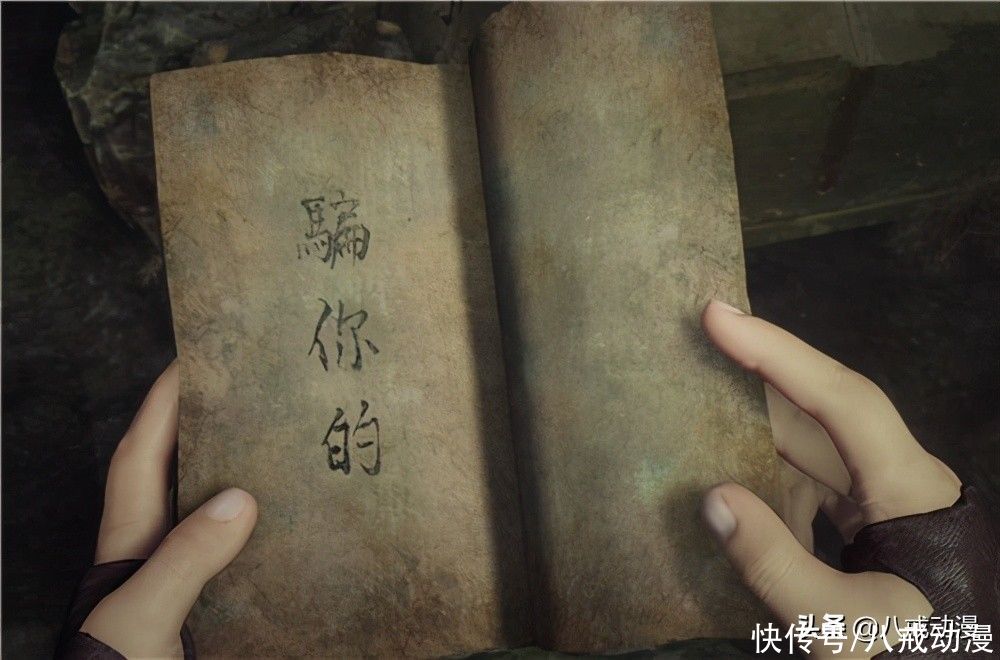 騙你的
头条 @八戒动漫
快传号/八戒动漫